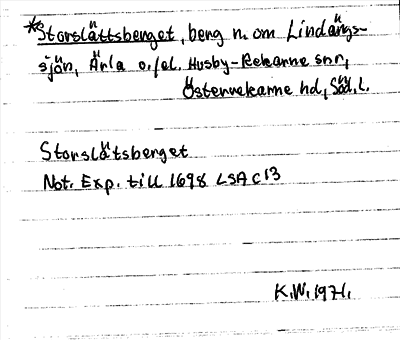 *Storslättsberget, berg n. om Lindängs-
sjön, Ärla o./el. Husby-Rekarne snr,
Österrekarne hd, Söd. l.
Storslätsberget
Not. Exp. till 1698 LSA C13
K.W. 1971.